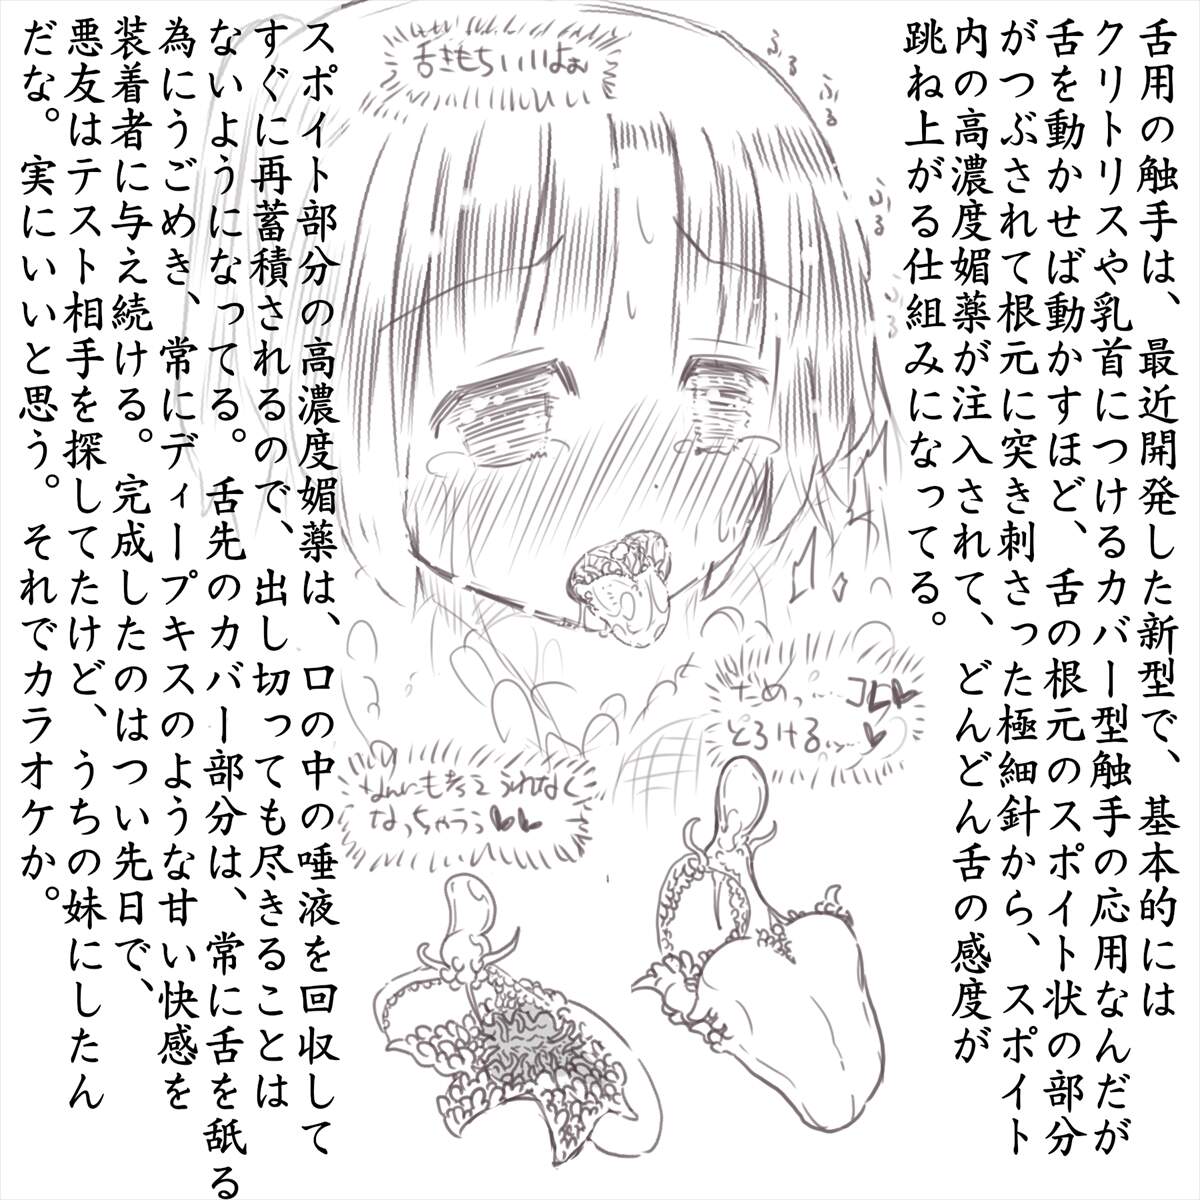 舌用の触手は、最近開発した新型で、基本的には
クリトリスや乳首につけるカバー型触手の応用なんだが
舌を動かせば動かすほど、舌の根元のスポイト状の部分
がつぶされて根元に突き刺さった極細針から、スポイト
内の高濃度媚薬が注入されて、どんどん舌の感度が
跳ね上がる仕組みになってる。
ふる
ふる
ふる
ふる
舌きもちいいよぉ
だめっ……コレ♥♥
とろけるッ…♥
なんにも考えられなく
なっちゃうぅ♥♥
スポイト部分の高濃度媚薬は、口の中の唾液を回収して
すぐに再蓄積されるので、出し切っても尽きることは
ないようになってる。舌先のカバー部分は、常に舌を舐る
為にうごめき、常にディープキスのような甘い快感を
装着者に与え続ける。完成したのはつい先日で、
悪友はテスト相手を探してたけど、うちの妹にしたん
だな。実にいいと思う。それでカラオケか。